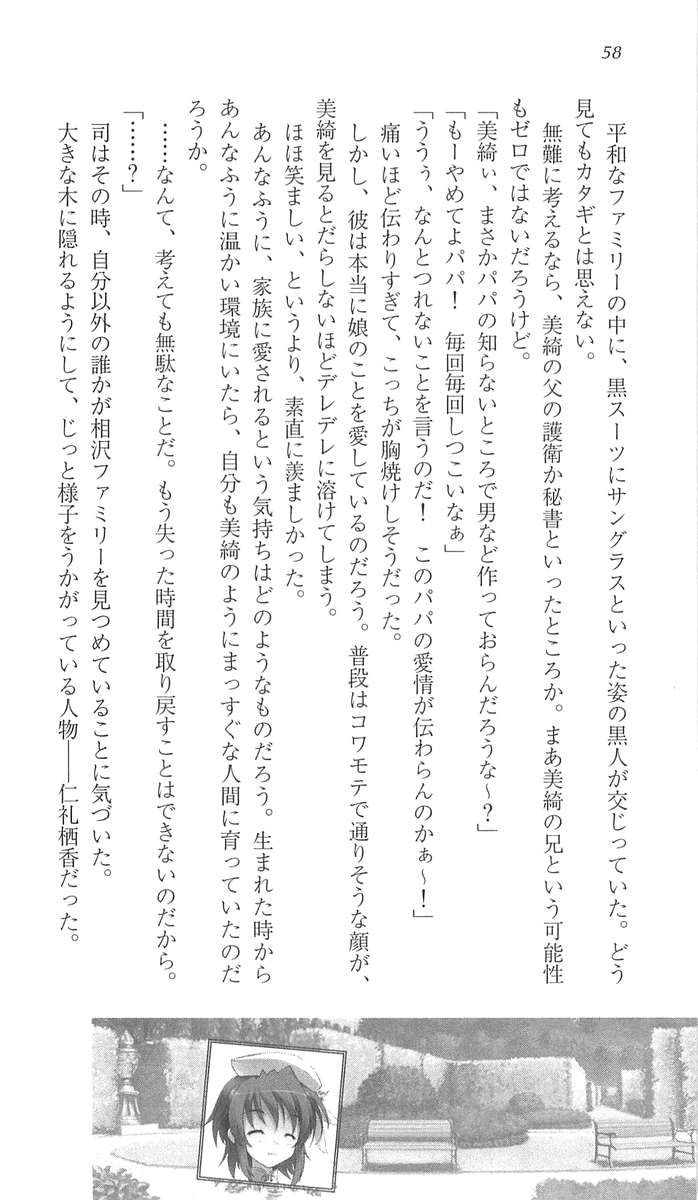 58
　平和なファミリーの中に、黒スーツにサングラスといった姿の黒人が交じっていた。どう
見てもカタギとは思えない。
　無難に考えるなら、美綺の父の護衛か秘書といったところか。まあ美綺の兄という可能性
もゼロではないだろうけど。
「美綺ぃ、まさかパパの知らないところで男など作っておらんだろうな～？」
「もーやめてよパパ！　毎回毎回しつこいなぁ」
「ううぅ、なんとつれないことを言うのだ！　このパパの愛情が伝わらんのかぁ～！」
　痛いほど伝わりすぎて、こっちが胸焼けしそうだった。
　しかし、彼は本当に娘のことを愛しているのだろう。普段はコワモテで通りそうな顔が、
美綺を見るとだらしないほどデレデレに溶けてしまう。
　ほほ笑ましい、というより、素直に羨ましかった。
　あんなふうに、家族に愛されるという気持ちはどのようなものだろう。生まれた時から
あんなふうに温かい環境にいたら、自分も美綺のようにまっすぐな人間に育っていたのだ
ろうか。
　……なんて、考えても無駄なことだ。もう失った時間を取り戻すことはできないのだから。
「……？」
　司はその時、自分以外の誰かが相沢ファミリーを見つめていることに気づいた。
　大きな木に隠れるようにして、じっと様子をうかがっている人物――仁礼栖香だった。